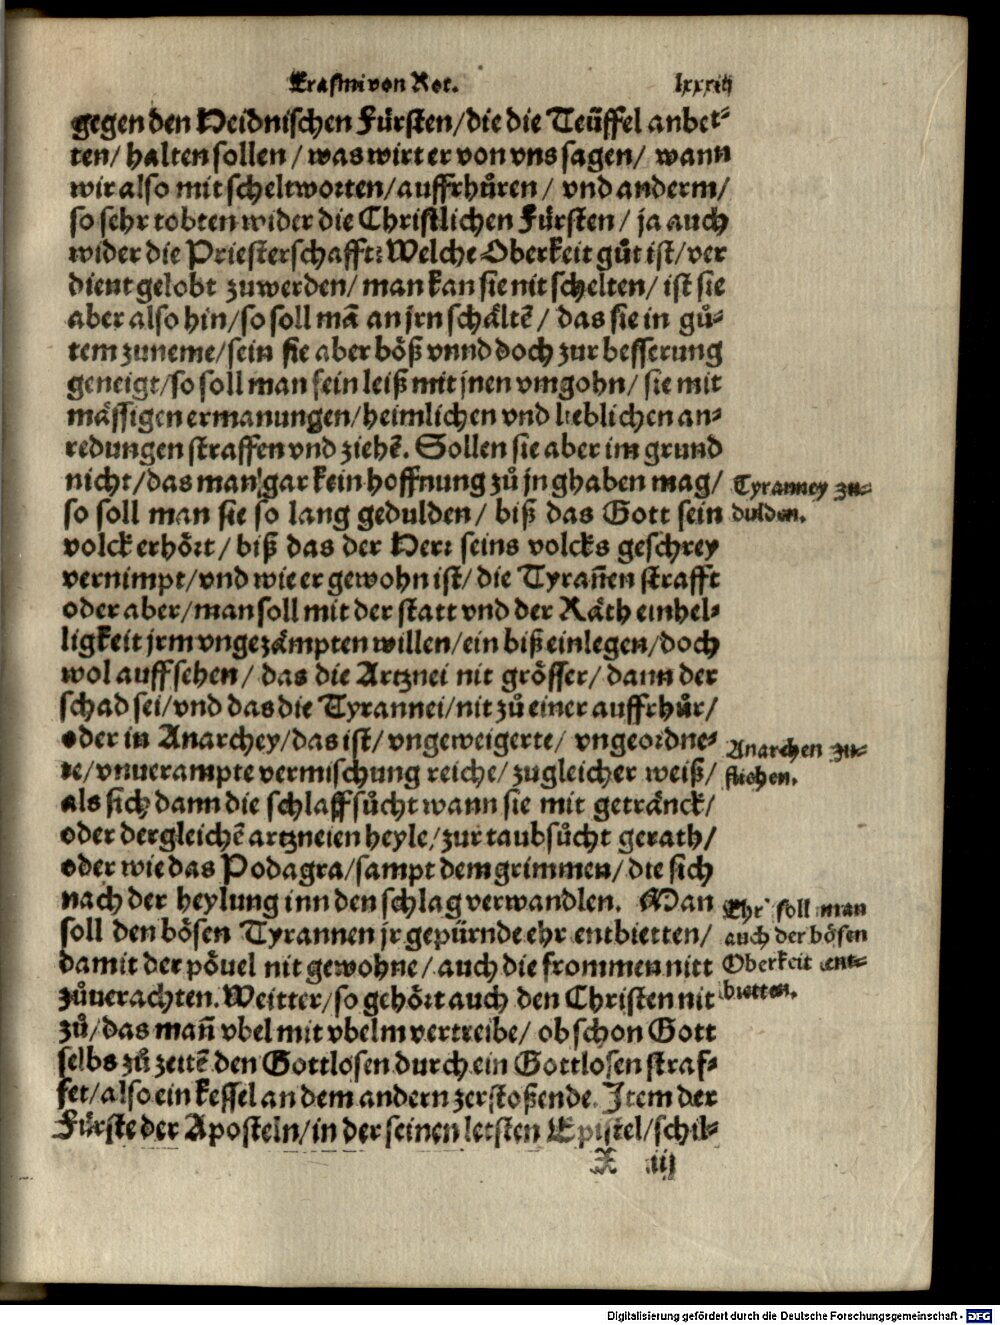 Erasmi von Rot. lxxxiij
gegen den Heidnischen Fürsten/die die Teüffel anbet⸗
ten/ halten sollen/ was wirt er von vns sagen/ wann
wir also mit scheltworten/auffrhůren/ vnd anderm/
so sehr tobten wider die Christlichen Fürsten/ ja auch
wider die Priesterschafft: Welche Oberkeit gůt ist/ver
dient gelobt zuwerden/ man kan sie nit schelten/ ist sie
aber also hin/so soll mã an jrn schältẽ/ das sie in gů⸗
tem zuneme/sein sie aber böß vnnd doch zur besserung
geneigt/so soll man sein leiß mit jnen vmgohn/ sie mit
mässigen ermanungen/heimlichen vnd lieblichen an⸗
redungen straffen vnd ziehẽ. Sollen sie aber im grund
nicht/das man gar kein hoffnung zů jn ghaben mag/
so soll man sie so lang gedulden/ biß das Gott sein
volck erhört/ biß das der Herr seins volcks geschrey
vernimpt/vnd wie er gewohn ist/ die Tyrañen strafft
oder aber/man soll mit der statt vnd der Räth einhel⸗
ligkeit jrm vngezämpten willen/ein biß einlegen/doch
wol auff sehen/ das die Artznei nit grösser/ dann der
schad sei/vnd das die Tyrannei/nit zů einer auffrhůr/
oder in Anarchey/das ist/ vngeweigerte/ vngeordne⸗
te/vnuerampte vermischung reiche/ zugleicher weiß/
als sich dann die schlaffsůcht wann sie mit getränck/
oder dergleichẽ artzneien heyle/zur taubsůcht gerath/
oder wie das Podagra/sampt dem grimmen/ die sich
nach der heylung inn den schlag verwandlen. Man
soll den bösen Tyrannen jr gepürnde ehr entbietten/
damit der pövel nit gewohne/ auch die frommen nitt
zůuerachten. Weitter/so gehört auch den Christen nit
zů/das mañ vbel mit vbelm vertreibe/ ob schon Gott
selbs zů zeitẽ den Gottlosen durch ein Gottlosen straf⸗
fet/also ein kessel an dem andern zerstoßende. Item der
Fürste der Aposteln/in der seinen letsten Epistel/schil⸗
X iij
Tyranney zu⸗
dulden.
Anarchen zu⸗
fliehen.
Ehr soll man
auch der bösen
Oberkeit ent⸗
bietten.
Digitalisierung gefördert durch die Deutsche Forschungsgemeinschaft - DFG